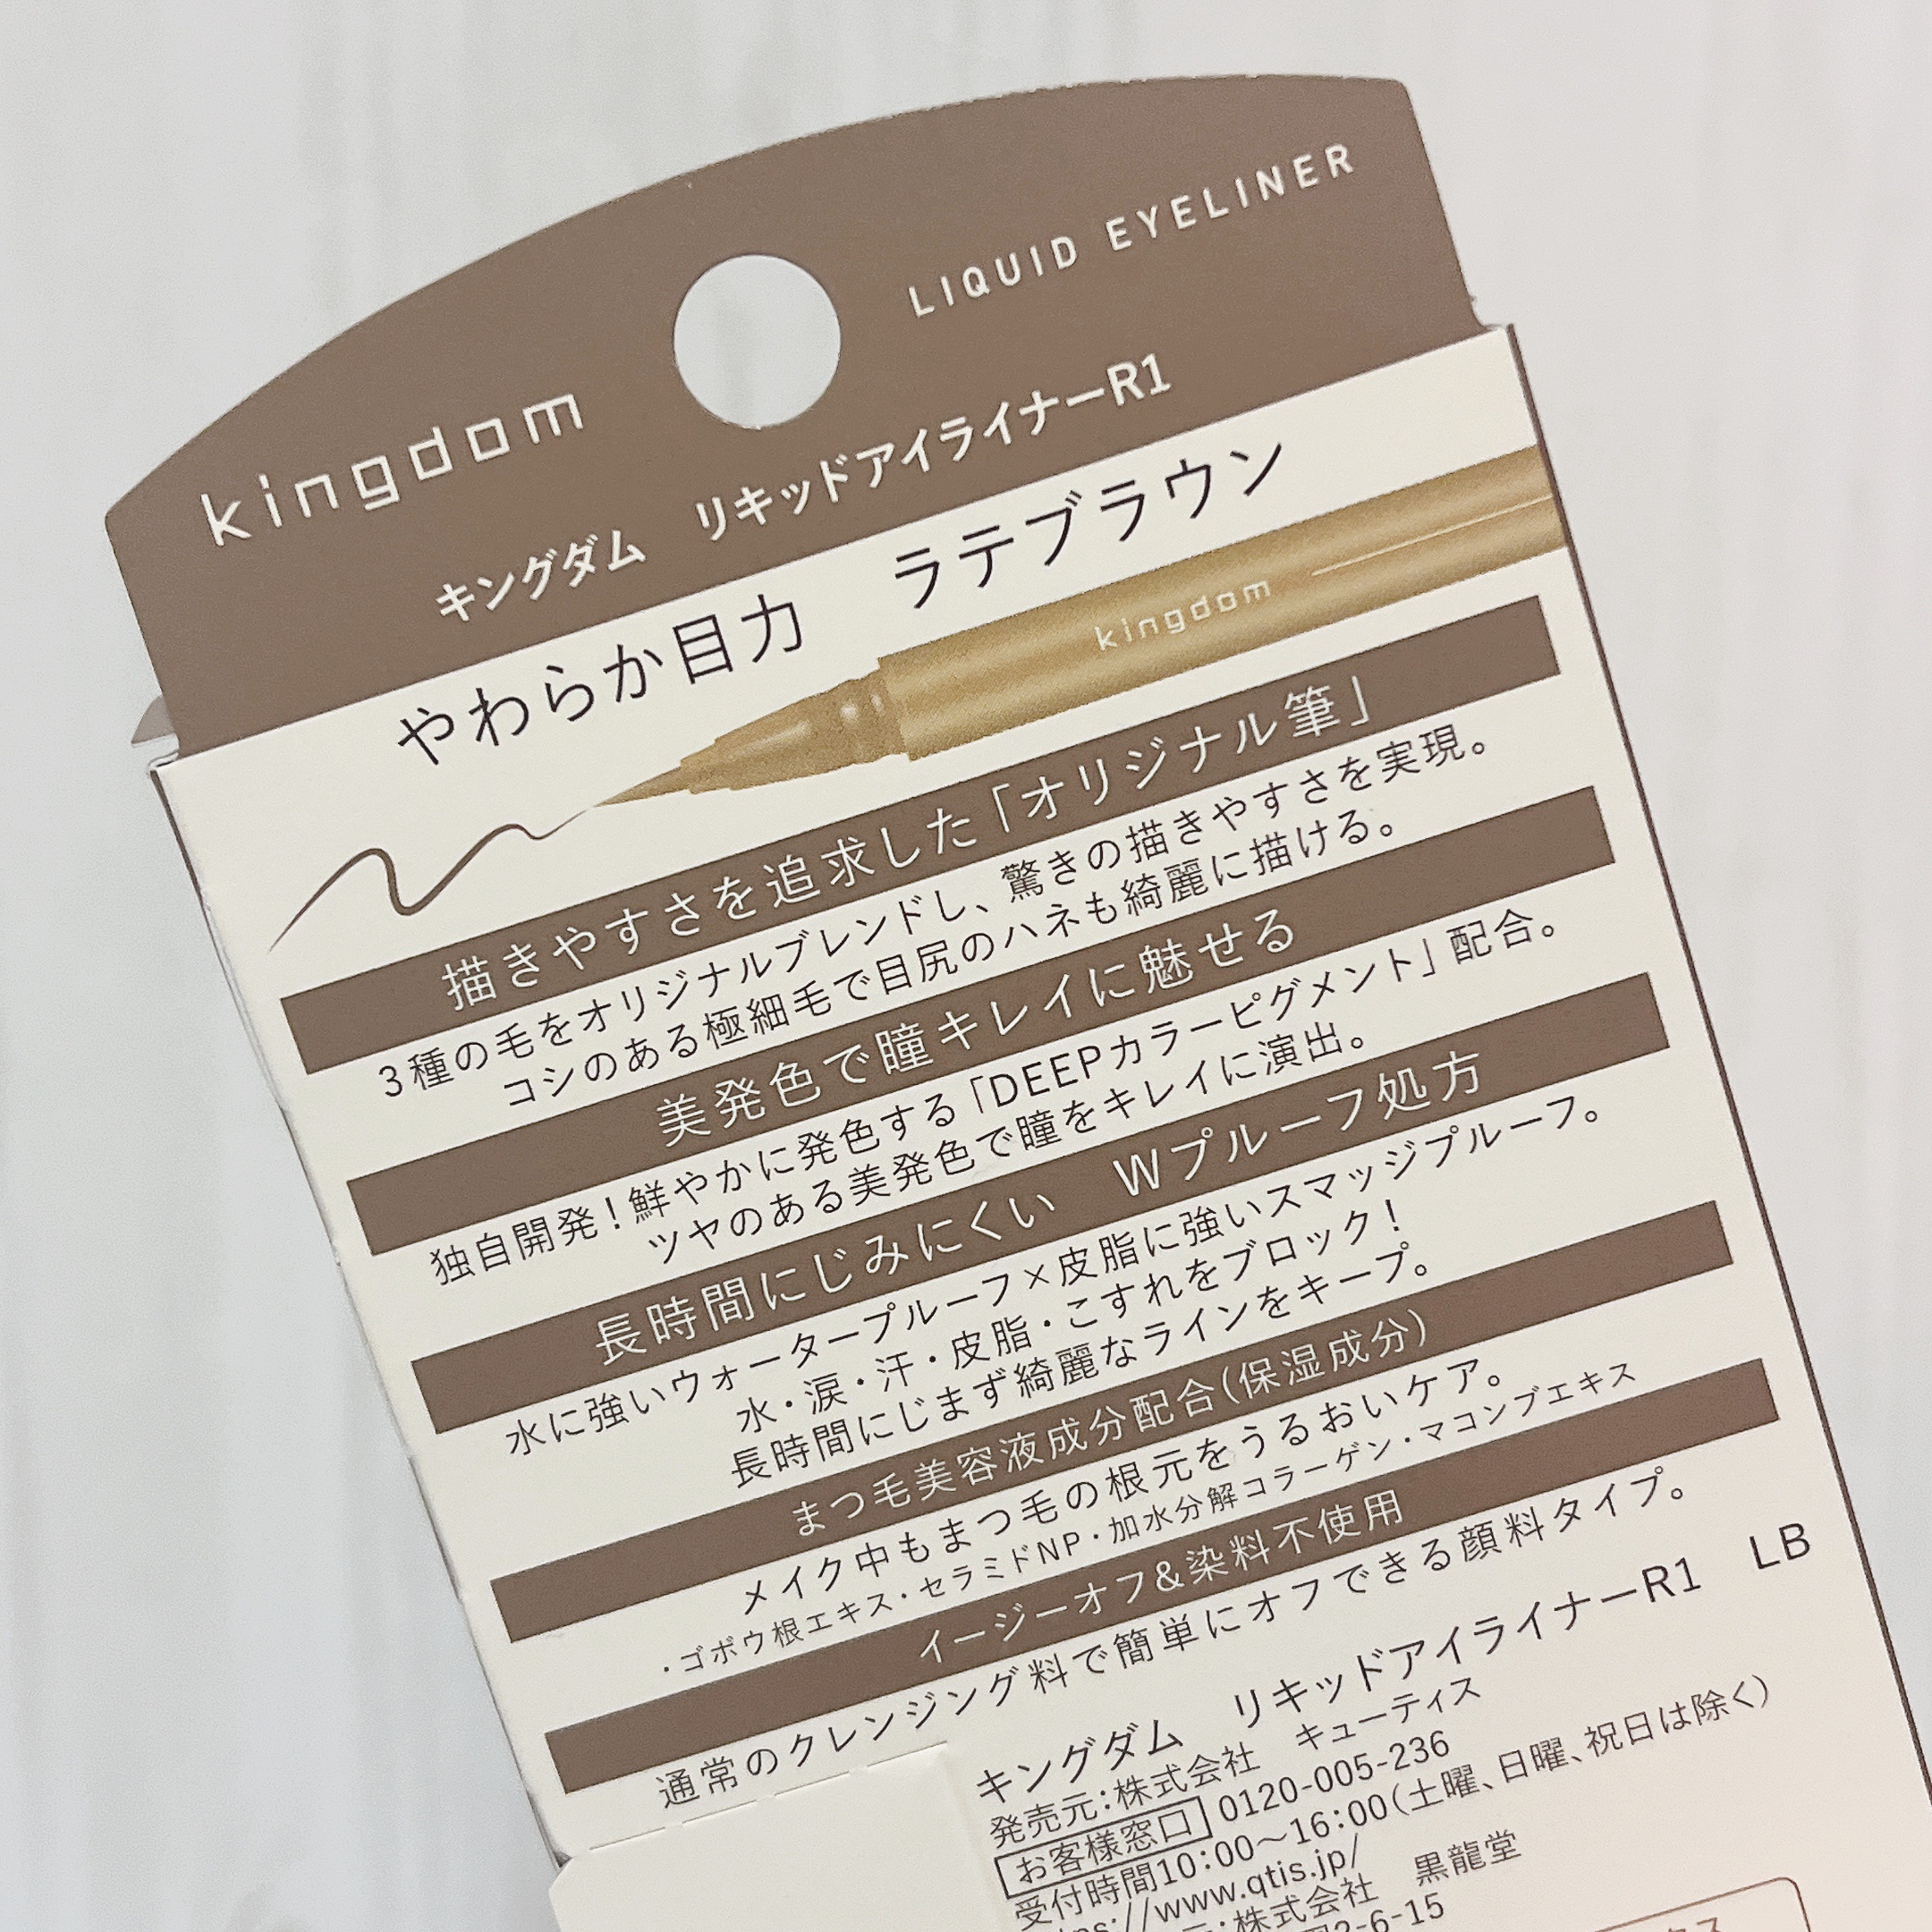 LIQUID EYELINER
kingdom
キングダム　リキッドアイライナーR1
やわらか目力　ラテブラウン
kingdom
描きやすさを追求した「オリジナル筆」
3種の毛をオリジナルブレンドし、驚きの描きやすさを実現。
コシのある極細毛で目尻のハネも綺麗に描ける。
美発色で瞳キレイに魅せる
独自開発！鮮やかに発色する「DEEPカラーピグメント」配合。
ツヤのある美発色で瞳をキレイに演出。
長時間にじみにくい　Wプルーフ処方
水に強いウォータープルーフ×皮脂に強いスマッジプルーフ。
水・涙・汗・皮脂・こすれをブロック！
長時間にじまず綺麗なラインをキープ。
まつ毛美容液成分配合(保湿成分)
メイク中もまつ毛の根元をうるおいケア。
・ゴボウ根エキス・セラミドNP・加水分解コラーゲン・マコンブエキス
イージーオフ&染料不使用
通常のクレンジング料で簡単にオフできる顔料タイプ。
キングダム　リキッドアイライナーR1　LB
発売元：株式会社　キューティス
お客様窓口 0120-005-236
受付時間10：00～16：00(土曜、日曜、祝日は除く)
://www.qtis.jp/
：株式会社　黒龍堂
2-6-15